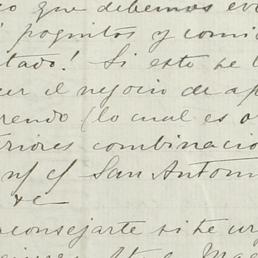 que debemos
poquitos y comi
tado! Si esto se
el negocio de ap
rendo (lo cual es o
teriores combinacio
n/ c/ San Antoni
&c
consejarte si te ur